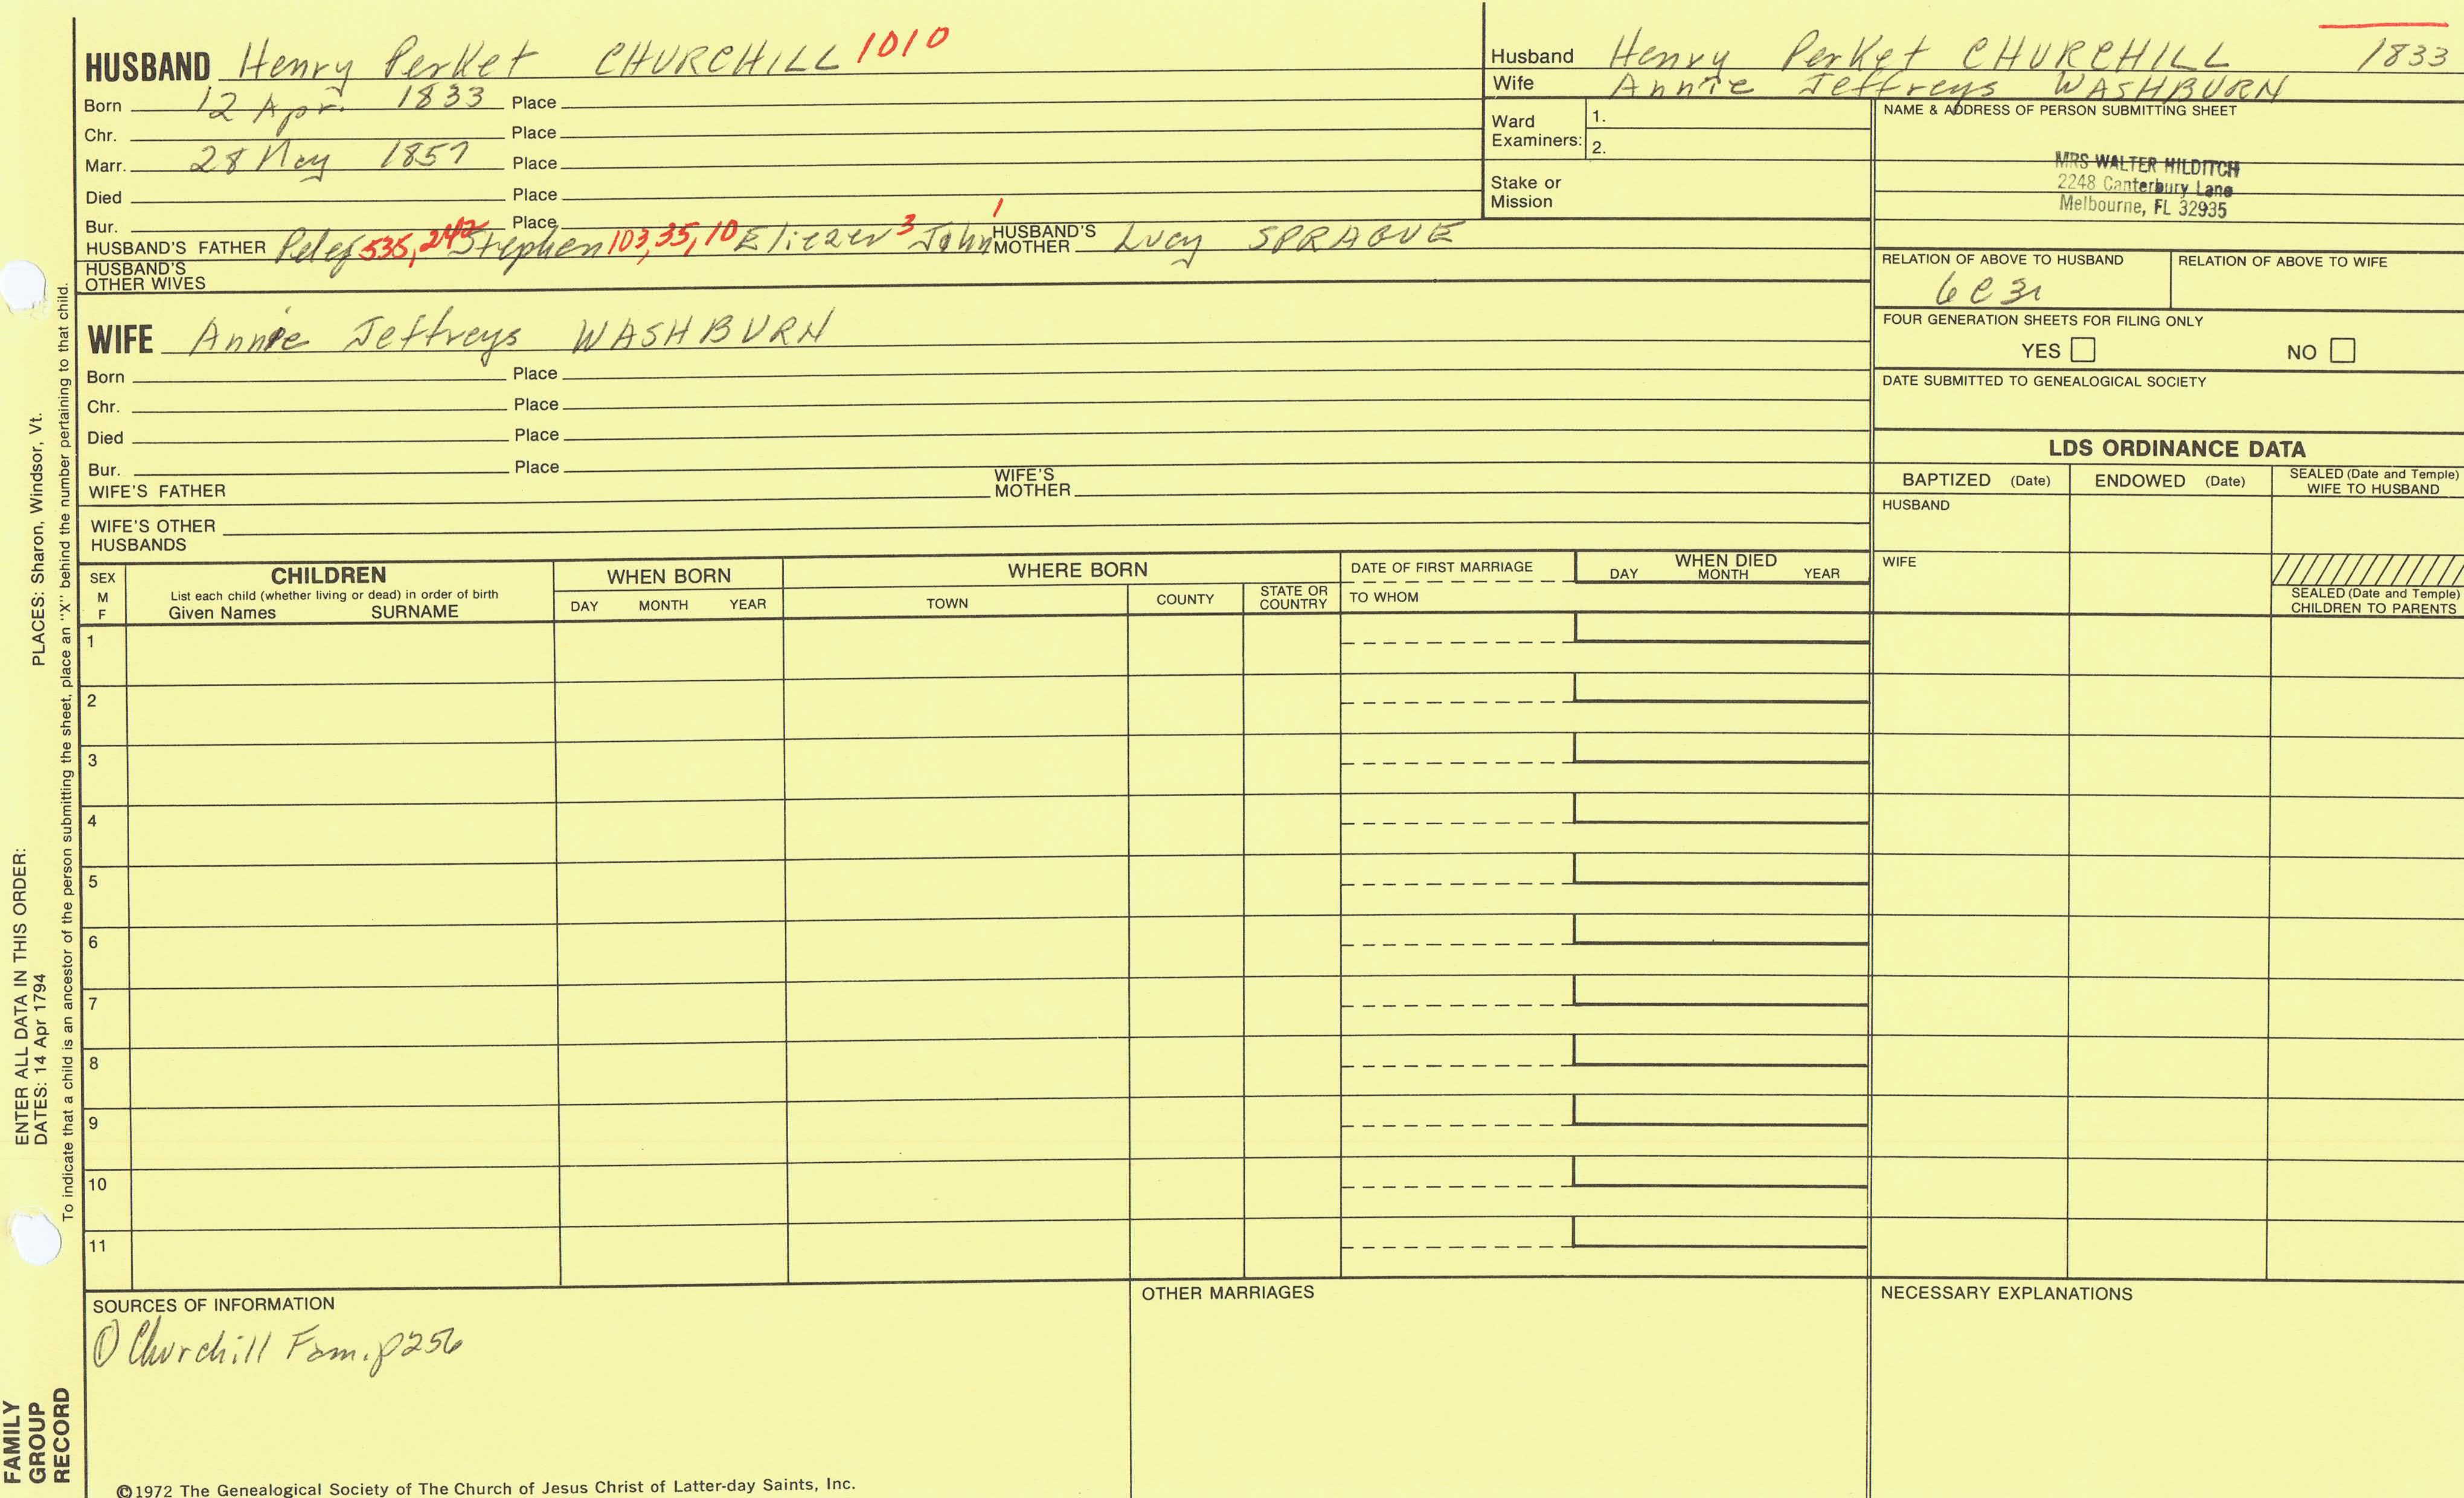 HUSBAND Henry Perket CHURCHILL 1010
Born 12 Apr. 1833 Place
Chr. Place
Marr. 28 May 1857 Place
Died Place
Bur. Place
HUSBAND'S FATHER Peleg 535, 242 Stephen 103, 35, 10 Eliezer 3 John 1 HUSBAND'S MOTHER Lucy SPRAGUE
HUSBAND'S OTHER WIVES
WIFE Annie Jeffreys WASHBURN
Born Place
Chr. Place
Died Place
Bur. Place
WIFE'S FATHER WIFE'S MOTHER
WIFE'S OTHER HUSBANDS
Husband Henry Perket CHURCHILL 1833
Wife Annie Jeffreys WASHBURN
Ward Examiners: 1.
2.
Stake or Mission
NAME & ADDRESS OF PERSON SUBMITTING SHEET
MRS WALTER HILDITCH
2248 Canterbury Lane
Melbourne, FL 32935
RELATION OF ABOVE TO HUSBAND RELATION OF ABOVE TO WIFE
6C3r
FOUR GENERATION SHEETS FOR FILING ONLY
YES NO
DATE SUBMITTED TO GENEALOGICAL SOCIETY
LDS ORDINANCE DATA
BAPTIZED (Date) ENDOWED (Date) SEALED (Date and Temple) WIFE TO HUSBAND
HUSBAND
WIFE
SEALED (Date and Temple) CHILDREN TO PARENTS
SEX M F
CHILDREN
List each child (whether living or dead) in order of birth
Given Names SURNAME
WHEN BORN
DAY MONTH YEAR
WHERE BORN
TOWN COUNTY STATE OR COUNTRY
DATE OF FIRST MARRIAGE
TO WHOM
WHEN DIED
DAY MONTH YEAR
1
2
3
4
5
6
7
8
9
10
11
SOURCES OF INFORMATION
① Churchill Fam. p256
OTHER MARRIAGES
NECESSARY EXPLANATIONS
©1972 The Genealogical Society of The Church of Jesus Christ of Latter-day Saints, Inc.
FAMILY
GROUP
RECORD
ENTER ALL DATA IN THIS ORDER:
DATES: 14 Apr 1794 PLACES: Sharon, Windsor, Vt.
To indicate that a child is an ancestor of the person submitting the sheet, place an "X" behind the number pertaining to that child.